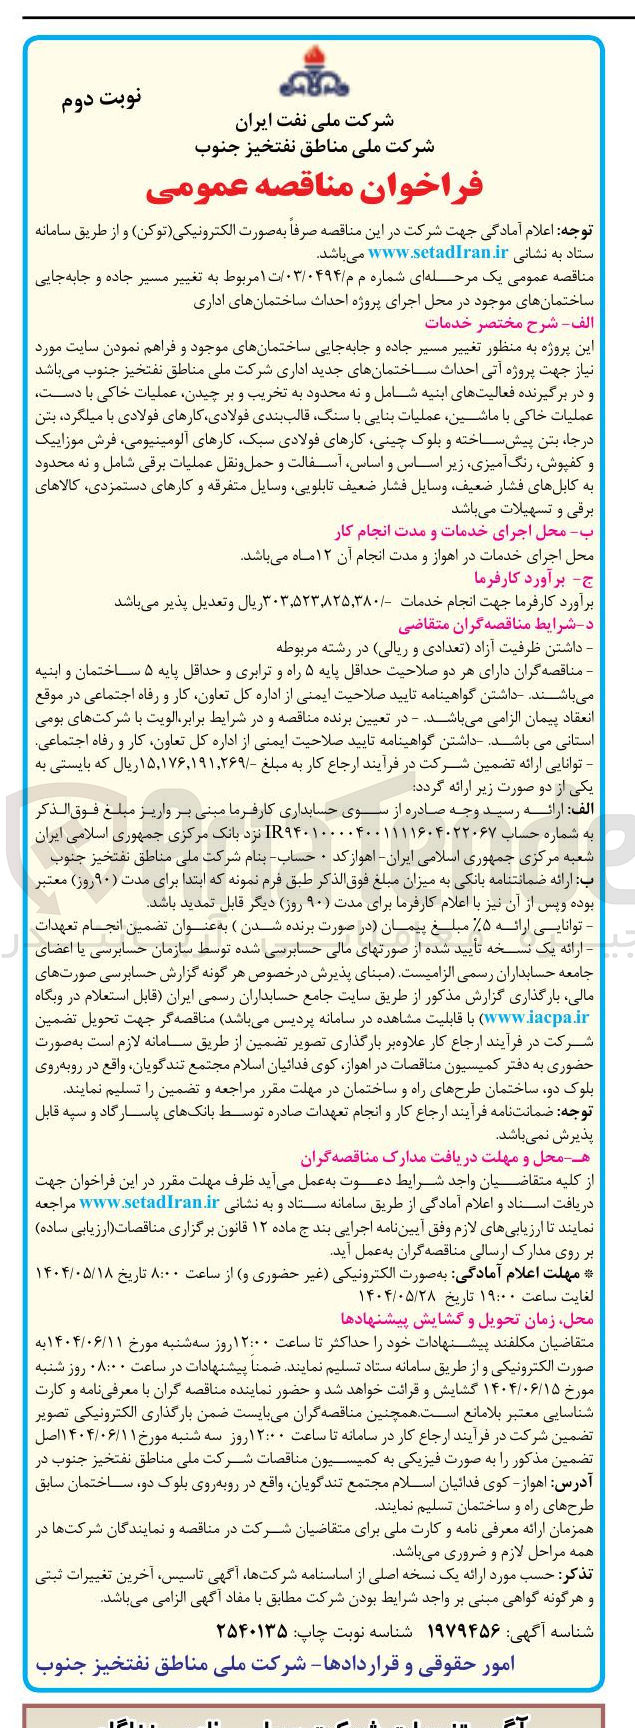 نوبت دوم
شرکت ملی نفت ایران
شرکت ملی مناطق نفتخیز جنوب
فراخوان مناقصه عمومی
توجه: اعلام آمادگی جهت شرکت در این مناقصه صرفاً به‌صورت الکترونیکی(توکن) و از طریق سامانه
ستاد به نشانی www.setadIran.ir می‌باشد.
مناقصه عمومی یک مرحله‌ای شماره م م/۰۳/۰۴۹۴/ت۱مربوط به تغییر مسیر جاده و جابه‌جایی
ساختمان‌های موجود در محل اجرای پروژه احداث ساختمان‌های اداری
الف- شرح مختصر خدمات
این پروژه به منظور تغییر مسیر جاده و جابه‌جایی ساختمان‌های موجود و فراهم نمودن سایت مورد
نیاز جهت پروژه آتی احداث ساختمان‌های جدید اداری شرکت ملی مناطق نفتخیز جنوب می‌باشد
و در برگیرنده فعالیت‌های ابنیه شامل و نه محدود به تخریب و بر چیدن، عملیات خاکی با دست،
عملیات خاکی با ماشین، عملیات بنایی با سنگ، قالب‌بندی فولادی،کارهای فولادی با میلگرد، بتن
درجا، بتن پیش‌ساخته و بلوک چینی، کارهای فولادی سبک، کارهای آلومینیومی، فرش موزاییک
و کفپوش، رنگ‌آمیزی، زیر اساس و اساس، آسفالت و حمل‌ونقل عملیات برقی شامل و نه محدود
به کابل‌های فشار ضعیف، وسایل فشار ضعیف تابلویی، وسایل متفرقه و کارهای دستمزدی، کالاهای
برقی و تسهیلات می‌باشد
ب- محل اجرای خدمات و مدت انجام کار
محل اجرای خدمات در اهواز و مدت انجام آن ۱۲ماه می‌باشد.
ج- برآورد کارفرما
برآورد کارفرما جهت انجام خدمات -/۳۰۳,۵۲۳,۸۲۵,۳۸۰ریال وتعدیل پذیر می‌باشد
د-شرایط مناقصه‌گران متقاضی
- داشتن ظرفیت آزاد (تعدادی و ریالی) در رشته مربوطه
- مناقصه‌گران دارای هر دو صلاحیت حداقل پایه ۵ راه و ترابری و حداقل پایه ۵ ساختمان و ابنیه
می‌باشند. -داشتن گواهینامه تایید صلاحیت ایمنی از اداره کل تعاون، کار و رفاه اجتماعی در موقع
انعقاد پیمان الزامی می‌باشد. - در تعیین برنده مناقصه و در شرایط برابر،الویت با شرکت‌های بومی
استانی می باشد. -داشتن گواهینامه تایید صلاحیت ایمنی از اداره کل تعاون، کار و رفاه اجتماعی.
- توانایی ارائه تضمین شرکت در فرآیند ارجاع کار به مبلغ -/۱۵,۱۷۶,۱۹۱,۲۶۹ریال که بایستی به
یکی از دو صورت زیر ارائه گردد:
الف: ارائه رسید وجه صادره از سوی حسابداری کارفرما مبنی بر واریز مبلغ فوق‌الذکر
به شماره حساب IR۹۴۰۱۰۰۰۰۴۰۰۱۱۱۱۶۰۴۰۲۲۰۶۷ نزد بانک مرکزی جمهوری اسلامی ایران
شعبه مرکزی جمهوری اسلامی ایران- اهوازکد ۰ حساب- بنام شرکت ملی مناطق نفتخیز جنوب
ب: ارائه ضمانتنامه بانکی به میزان مبلغ فوق‌الذکر طبق فرم نمونه که ابتدا برای مدت (۹۰روز) معتبر
بوده وپس از آن نیز با اعلام کارفرما برای مدت (۹۰ روز) دیگر قابل تمدید باشد.
- توانایی ارائه ۵٪ مبلغ پیمان (درصورت برنده شدن ) به‌عنوان تضمین انجام تعهدات
- ارائه یک نسخه تأیید شده از صورتهای مالی حسابرسی شده توسط سازمان حسابرسی یا اعضای
جامعه حسابداران رسمی الزامیست. (مبنای پذیرش درخصوص هر گونه گزارش حسابرسی صورت‌های
مالی، بارگذاری گزارش مذکور از طریق سایت جامع حسابداران رسمی ایران (قابل استعلام در وبگاه
www.iacpa.ir) با قابلیت مشاهده در سامانه پردیس می‌باشد) مناقصه‌گر جهت تحویل تضمین
شرکت در فرآیند ارجاع کار علاوه‌بر بارگذاری تصویر تضمین از طریق سامانه لازم است به‌صورت
حضوری به دفتر کمیسیون مناقصات در اهواز، کوی فدائیان اسلام مجتمع تندگویان، واقع در روبه‌روی
بلوک دو، ساختمان طرح‌های راه و ساختمان در مهلت مقرر مراجعه و تضمین را تسلیم نمایند.
توجه: ضمانت‌نامه فرآیند ارجاع کار و انجام تعهدات صادره توسط بانک‌های پاسارگاد و سپه قابل
پذیرش نمی‌باشد.
هـ-محل و مهلت دریافت مدارک مناقصه‌گران
از کلیه متقاضیان واجد شرایط دعوت به‌عمل می‌آید ظرف مهلت مقرر در این فراخوان جهت
دریافت اسناد و اعلام آمادگی از طریق سامانه ستاد و به نشانی www.setadIran.ir مراجعه
نمایند تا ارزیابی‌های لازم وفق آیین‌نامه اجرایی بند ج ماده ۱۲ قانون برگزاری مناقصات(ارزیابی ساده)
بر روی مدارک ارسالی مناقصه‌گران به‌عمل آید.
* مهلت اعلام آمادگی: به‌صورت الکترونیکی (غیر حضوری و) از ساعت ۸:۰۰ تاریخ ۱۴۰۴/۰۵/۱۸
لغایت ساعت ۱۹:۰۰ تاریخ ۱۴۰۴/۰۵/۲۸
محل، زمان تحویل و گشایش پیشنهادها
متقاضیان مکلفند پیشنهادات خود را حداکثر تا ساعت ۱۲:۰۰روز سه‌شنبه مورخ ۱۴۰۴/۰۶/۱۱به
صورت الکترونیکی و از طریق سامانه ستاد تسلیم نمایند. ضمناً پیشنهادات در ساعت ۰۸:۰۰ روز شنبه
مورخ ۱۴۰۴/۰۶/۱۵ گشایش و قرائت خواهد شد و حضور نماینده مناقصه گران با معرفی‌نامه و کارت
شناسایی معتبر بلامانع است.همچنین مناقصه‌گران می‌بایست ضمن بارگذاری الکترونیکی تصویر
تضمین شرکت در فرآیند ارجاع کار در سامانه تا ساعت ۱۲:۰۰روز سه شنبه مورخ۱۴۰۴/۰۶/۱۱اصل
تضمین مذکور را به صورت فیزیکی به کمیسیون مناقصات شرکت ملی مناطق نفتخیز جنوب در
آدرس: اهواز- کوی فدائیان اسلام مجتمع تندگویان، واقع در روبه‌روی بلوک دو، ساختمان سابق
طرح‌های راه و ساختمان تسلیم نمایند.
همزمان ارائه معرفی نامه و کارت ملی برای متقاضیان شرکت در مناقصه و نمایندگان شرکت‌ها در
همه مراحل لازم و ضروری می‌باشد.
تذکر: حسب مورد ارائه یک نسخه اصلی از اساسنامه شرکت‌ها، آگهی تاسیس، آخرین تغییرات ثبتی
و هرگونه گواهی مبنی بر واجد شرایط بودن شرکت مطابق با مفاد آگهی الزامی می‌باشد.
شناسه آگهی: ۱۹۷۹۴۵۶ شناسه نوبت چاپ: ۲۵۴۰۱۳۵
امور حقوقی و قراردادها- شرکت ملی مناطق نفتخیز جنوب